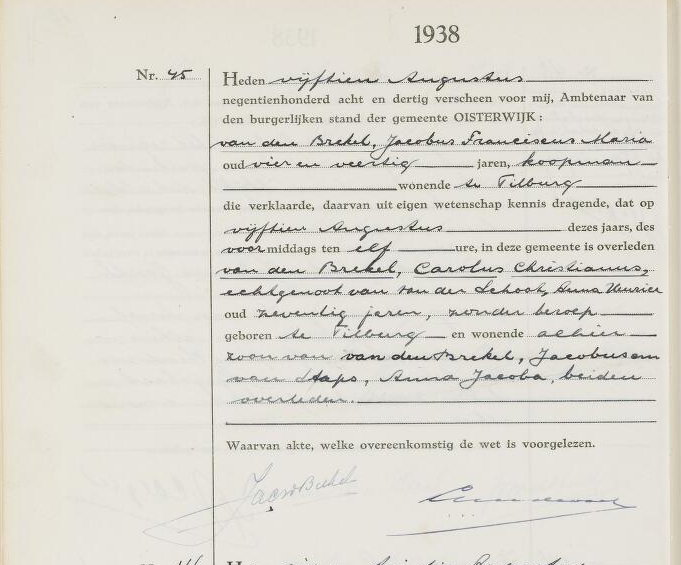 1938
Nr. 45
Heden vijftien Augustus
negentienhonderd acht en dertig verscheen voor mij, Ambtenaar van
den burgerlijken stand der gemeente OISTERWIJK:
van den Brekel, Jacobus Franciscus Maria
oud vier en veertig jaren, koopman
wonende te Tilburg
die verklaarde, daarvan uit eigen wetenschap kennis dragende, dat op
vijftien Augustus dezes jaars, des
voormiddags ten elf ure, in deze gemeente is overleden
van den Brekel, Carolus Christianus,
echtgenoot van van der Schoot, Anna
oud zeventig jaren, zonder beroep
geboren te Tilburg en wonende alhier
zoon van van den Brekel, Jacobus en
van Staps, Anna Jacoba, beiden
overleden.
Waarvan akte, welke overeenkomstig de wet is voorgelezen.
Jac v d Brekel